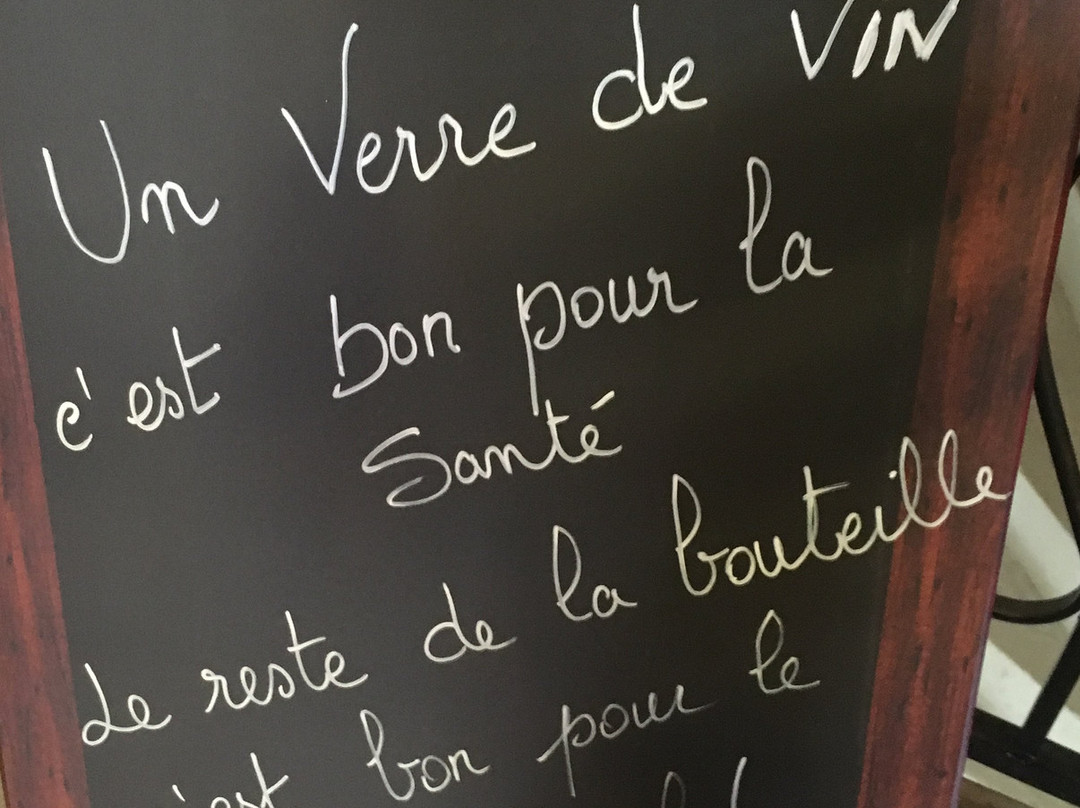 Un Verre de VIN
c'est bon pour la
Santé
Le reste de la bouteille
c'est bon pour le